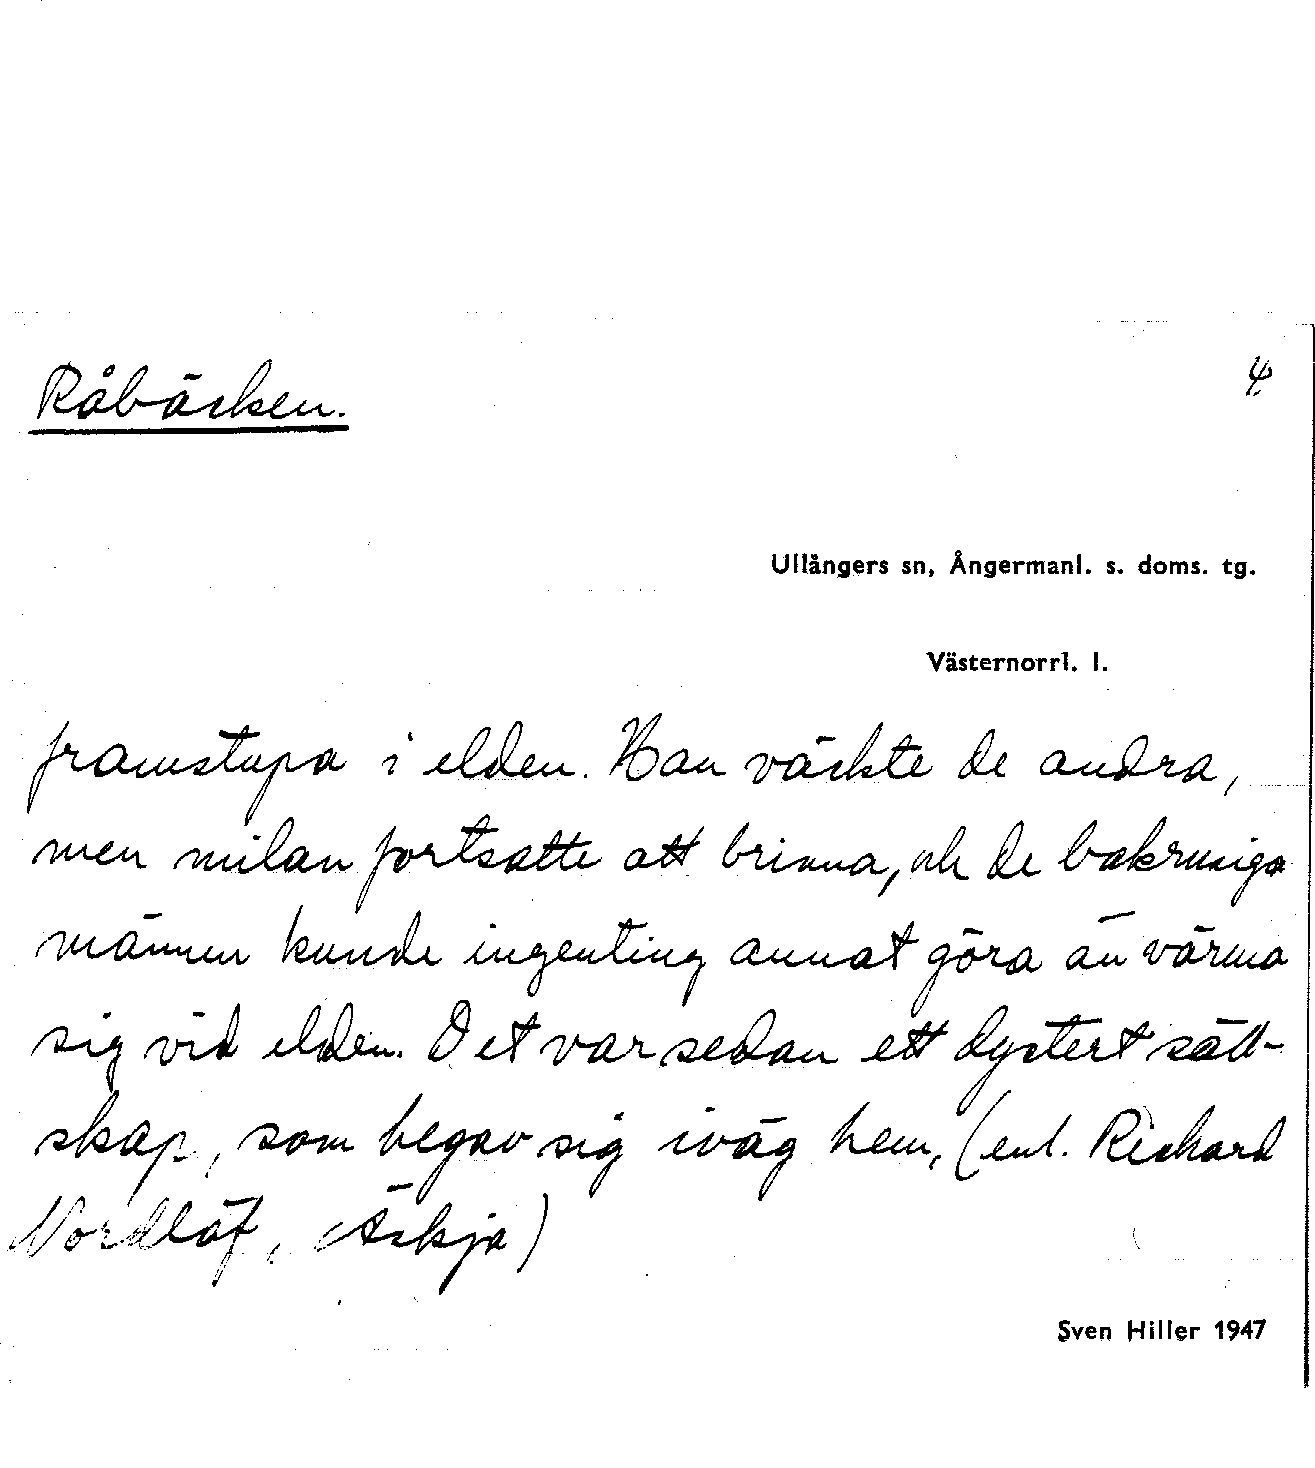 Råbäcken.
4.
Ullångers sn, Ångermanl. s. doms. tg.
Västernorrl. l.
framstupa i elden. Han väckte de andra,
men milan fortsatte att brinna, och de bakrusiga
männen kunde ingenting annat göra än värma
sig vid elden. Det var sedan ett dystert säll-
skap, som begav sig iväg hem, (enl. Richard
Nordlöf, Äskja)
Sven Hiller 1947